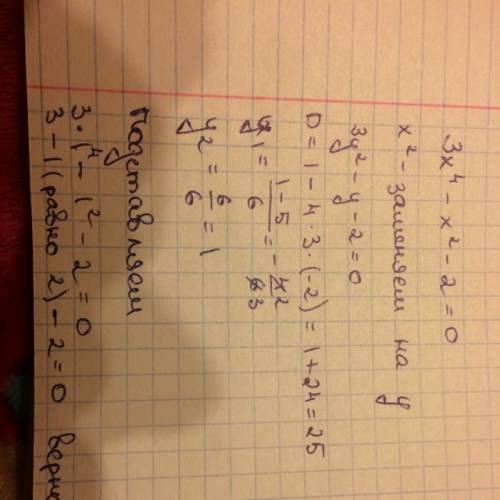 3x⁴ - x² - 2 = 0
x² - заменяем на y
3y² - y - 2 = 0
D = 1 - 4·3·(-2) = 1 + 24 = 25
y₁ = (1-5)/6 = -4/6 2/3
y₂ = 6/6 = 1
Подставляем
3·1⁴ - 1² - 2 = 0
3 - 1 (равно 2) - 2 = 0